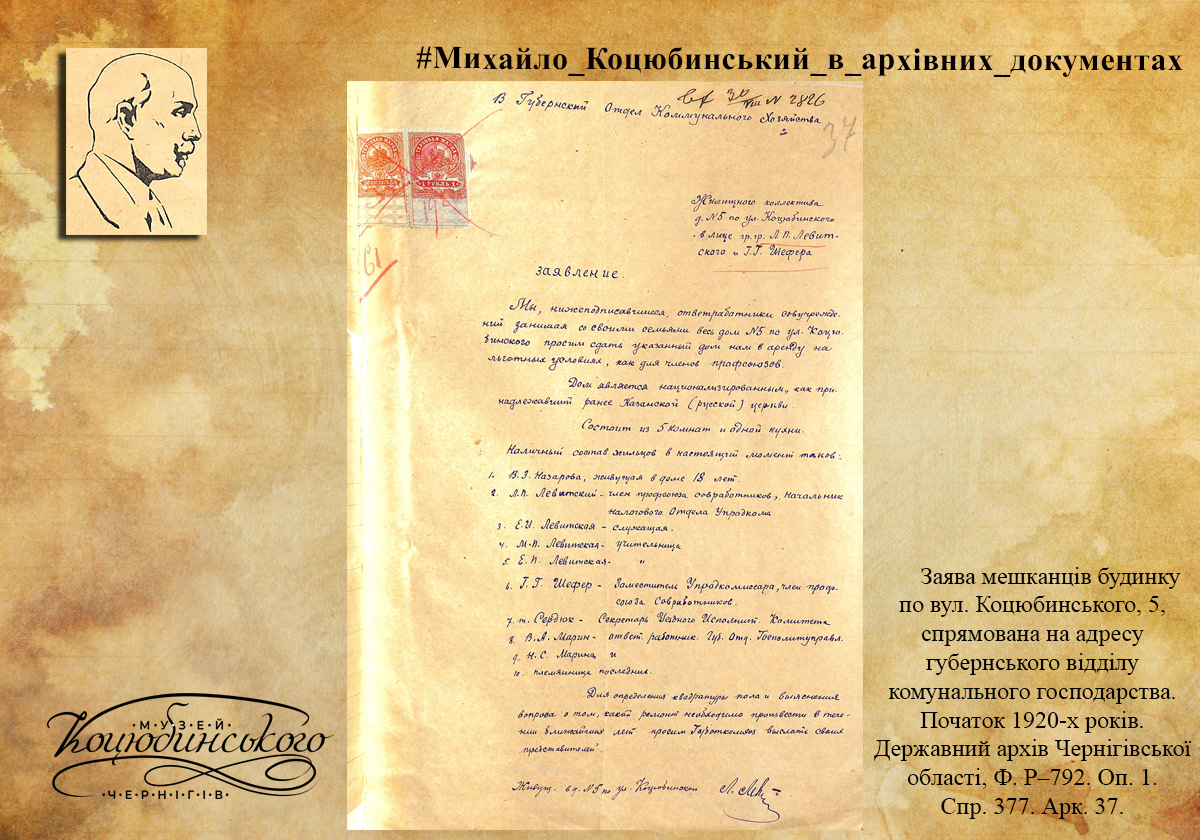 #Михайло_Коцюбинський_в_архівних_документах
вх 30/VIII N 2826
В Губернский Отдел Коммунального Хозяйства
37
1 РУБЛЬ 1
61
Жилищного коллектива
д. N5 по ул. Коцюбинского
в лице гр.гр. Л.П. Левит-
ского и Г.Г. Шефера
заявление.
Мы, нижеподписавшиеся, ответработники совучрежде-
ний занимая со своими семьями весь дом N5 по ул. Коцю-
бинского просим сдать указанный дом нам в аренду на
льготных условиях, как для членов профсоюзов.
Дом является национализированным, как при-
надлежавший ранее Казанской (русской) церкви.
Состоит из 5 комнат и одной кухни.
Наличный состав жильцов в настоящий момент таков:
1. В.З. Назарова, живущая в доме 18 лет.
2. Л.П. Левитский - член профсоюза совработников, Начальник
Налогового Отдела Упродкома
3. Е.И. Левитская - служащая.
4. М.П. Левитская - учительница
5. Е.П. Левитская - "
6. Г.Г. Шефер - Заместитель Упродкомиссара, член проф-
союза Совработников.
7. т. Сердюк - Секретарь Уездного Исполнит. Комитета
8. В.А. Марин - ответ. работник. Губ. Отд. Госполитуправл.
9. Н.С. Марина и
10. племянница последних.
Для определения квадратуры пола и выяснения
вопроса о том, какой ремонт необходимо произвести в тече-
нии ближайших лет просим Губоткомхоз выслать своих
представителей.
Живущ. в д. N5 по ул. Коцюбинской
Заява мешканців будинку
по вул. Коцюбинського, 5,
спрямована на адресу
губернського відділу
комунального господарства.
Початок 1920-х років.
Державний архів Чернігівської
області, Ф. Р–792. Оп. 1.
Спр. 377. Арк. 37.
·М·У·З·Е·Й·
Коцюбинського
·Ч·Е·Р·Н·І·Г·І·В·